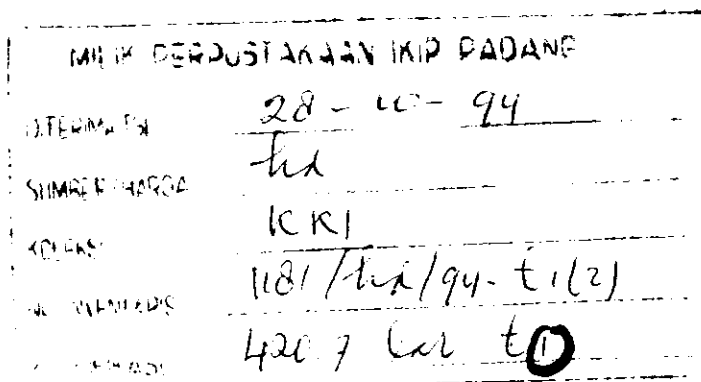 MILIK PERPUSTAKAAN IKIP PADANG
DITERIMA TGL 28 - 10 - 94
SUMBER / HARGA hd
KOLEKSI KKI
NO. INVENTARIS 1181/hd/94-t1(2)
420.7 t1